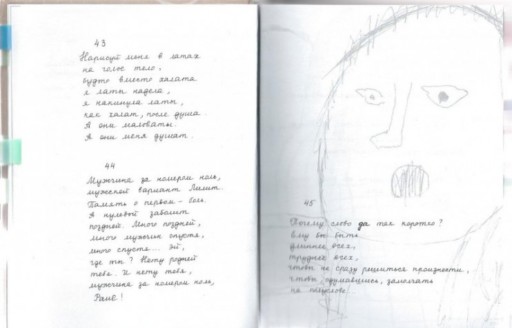 43
Нарисуй меня в латах
на голое тело,
будто вместо халата
я латы надела,
я накинула латы,
как халат, после душа.
А они маловаты.
А они меня душат.
44
Мужчина за номером ноль,
мужской вариант Лилит.
Память о первом – боль.
А нулевой заболит
поздней. Много поздней,
много мужчин спустя,
много спустя... Эй,
где ты? Нету родней
тебя. И нету тебя,
мужчина за номером ноль,
Рай!
45
Почему слово да так коротко?
Ему бы быть
длиннее всех,
труднее всех,
чтобы не сразу решиться произнести,
чтобы, одумавшись, замолчать
на полуслове.